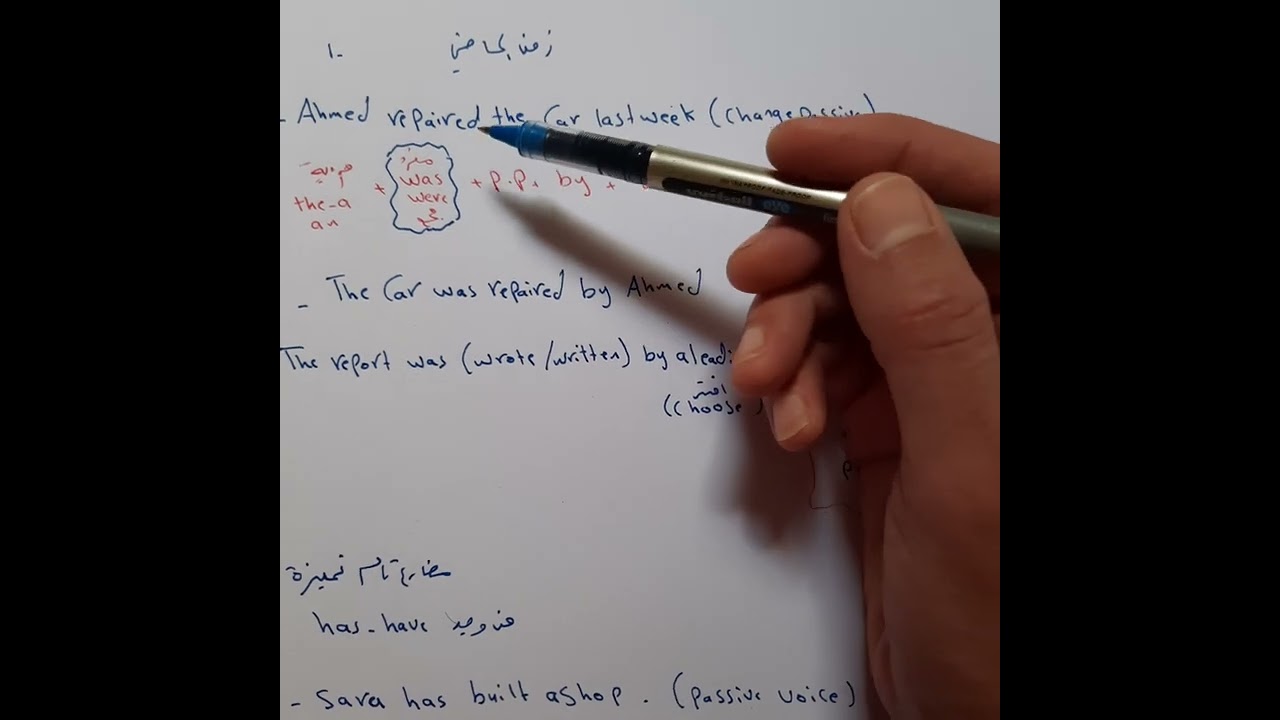 1- زمن الماضي
- Ahmed repaired the Car last week (Change passive)
مفرد
+ was + p.p + by +
the-a were
an جمع
- The Car was repaired by Ahmed
The report was (wrote/written) by a
اختر
((choose)
مضارع تام نميزة
has-have من وجود
- Sara has built a shop. (passive voice)